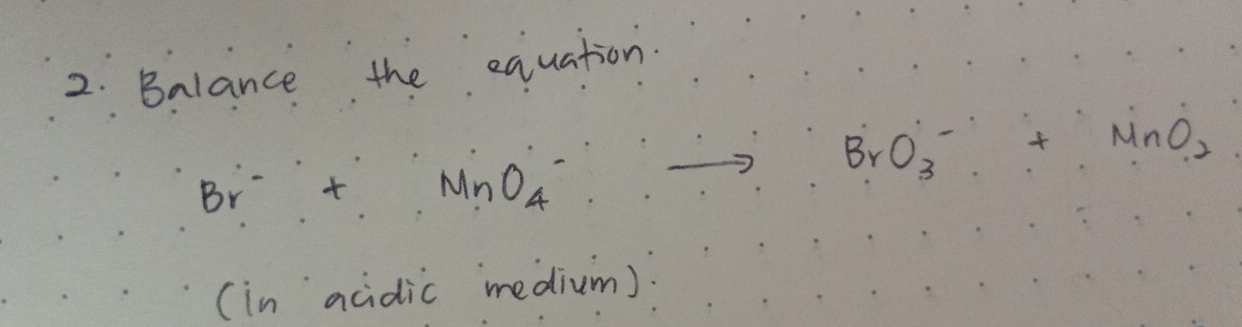 2. Balance the equation.
Br⁻ + MnO₄⁻ ⟶ BrO₃⁻ + MnO₂
(in acidic medium).